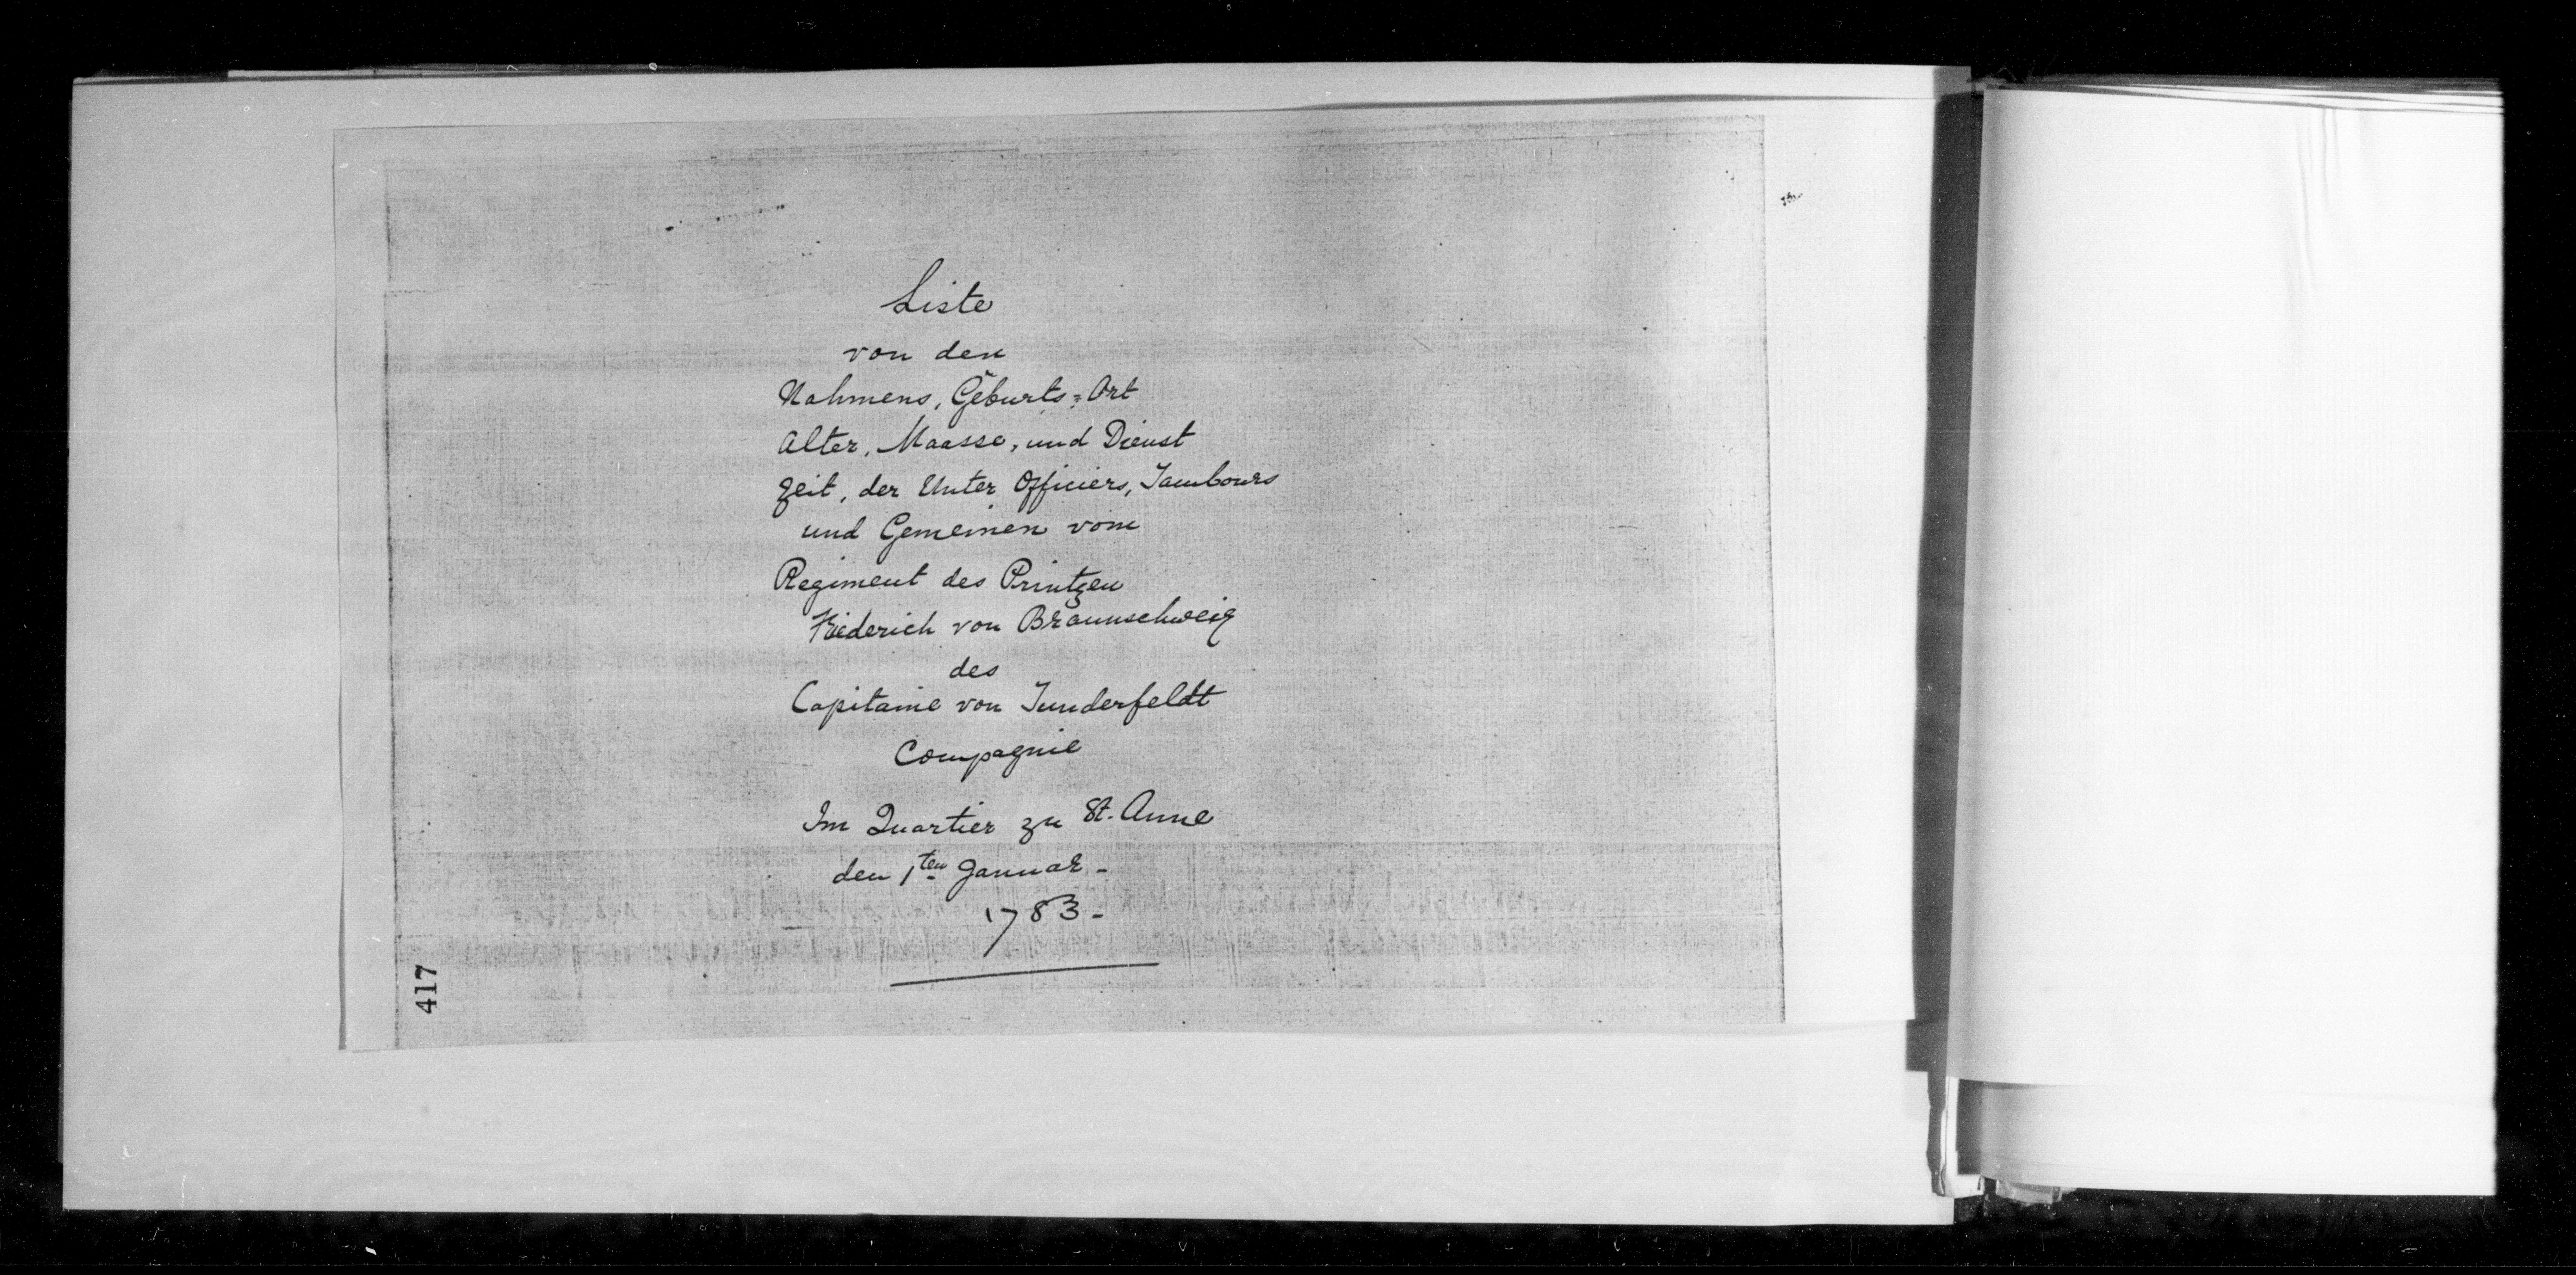 Liste
von den
Nahmens, Geburts=Ort
Alter, Maasse, und Dienst
Zeit, der Unter Officiers, Tambours
und Gemeinen vom
Regiment des Printzen
Friederich von Braunschweig
des
Capitaine von Tunderfeldt
Compagnie
Im Quartier zu St. Anne
den 1ten Januar -
1783 -
417